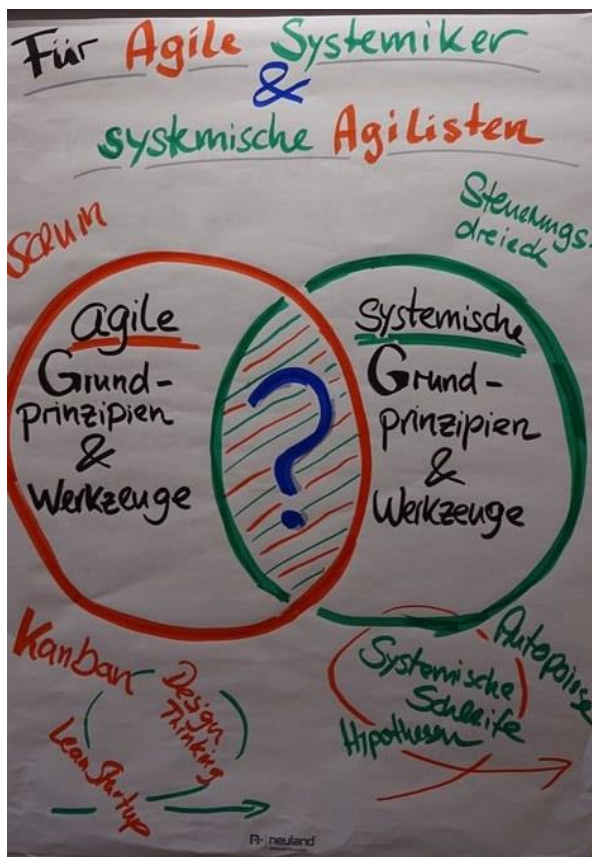 Für Agile Systemiker
&
systemische Agilisten
Scrum
Steuerungs-
dreieck
agile
Grund-
prinzipien
&
Werkzeuge
?
systemische
Grund-
prinzipien
&
Werkzeuge
Kanban
Design
Thinking
Lean Startup
Autopoiese
Systemische
Schleife
Hypothesen
neuland